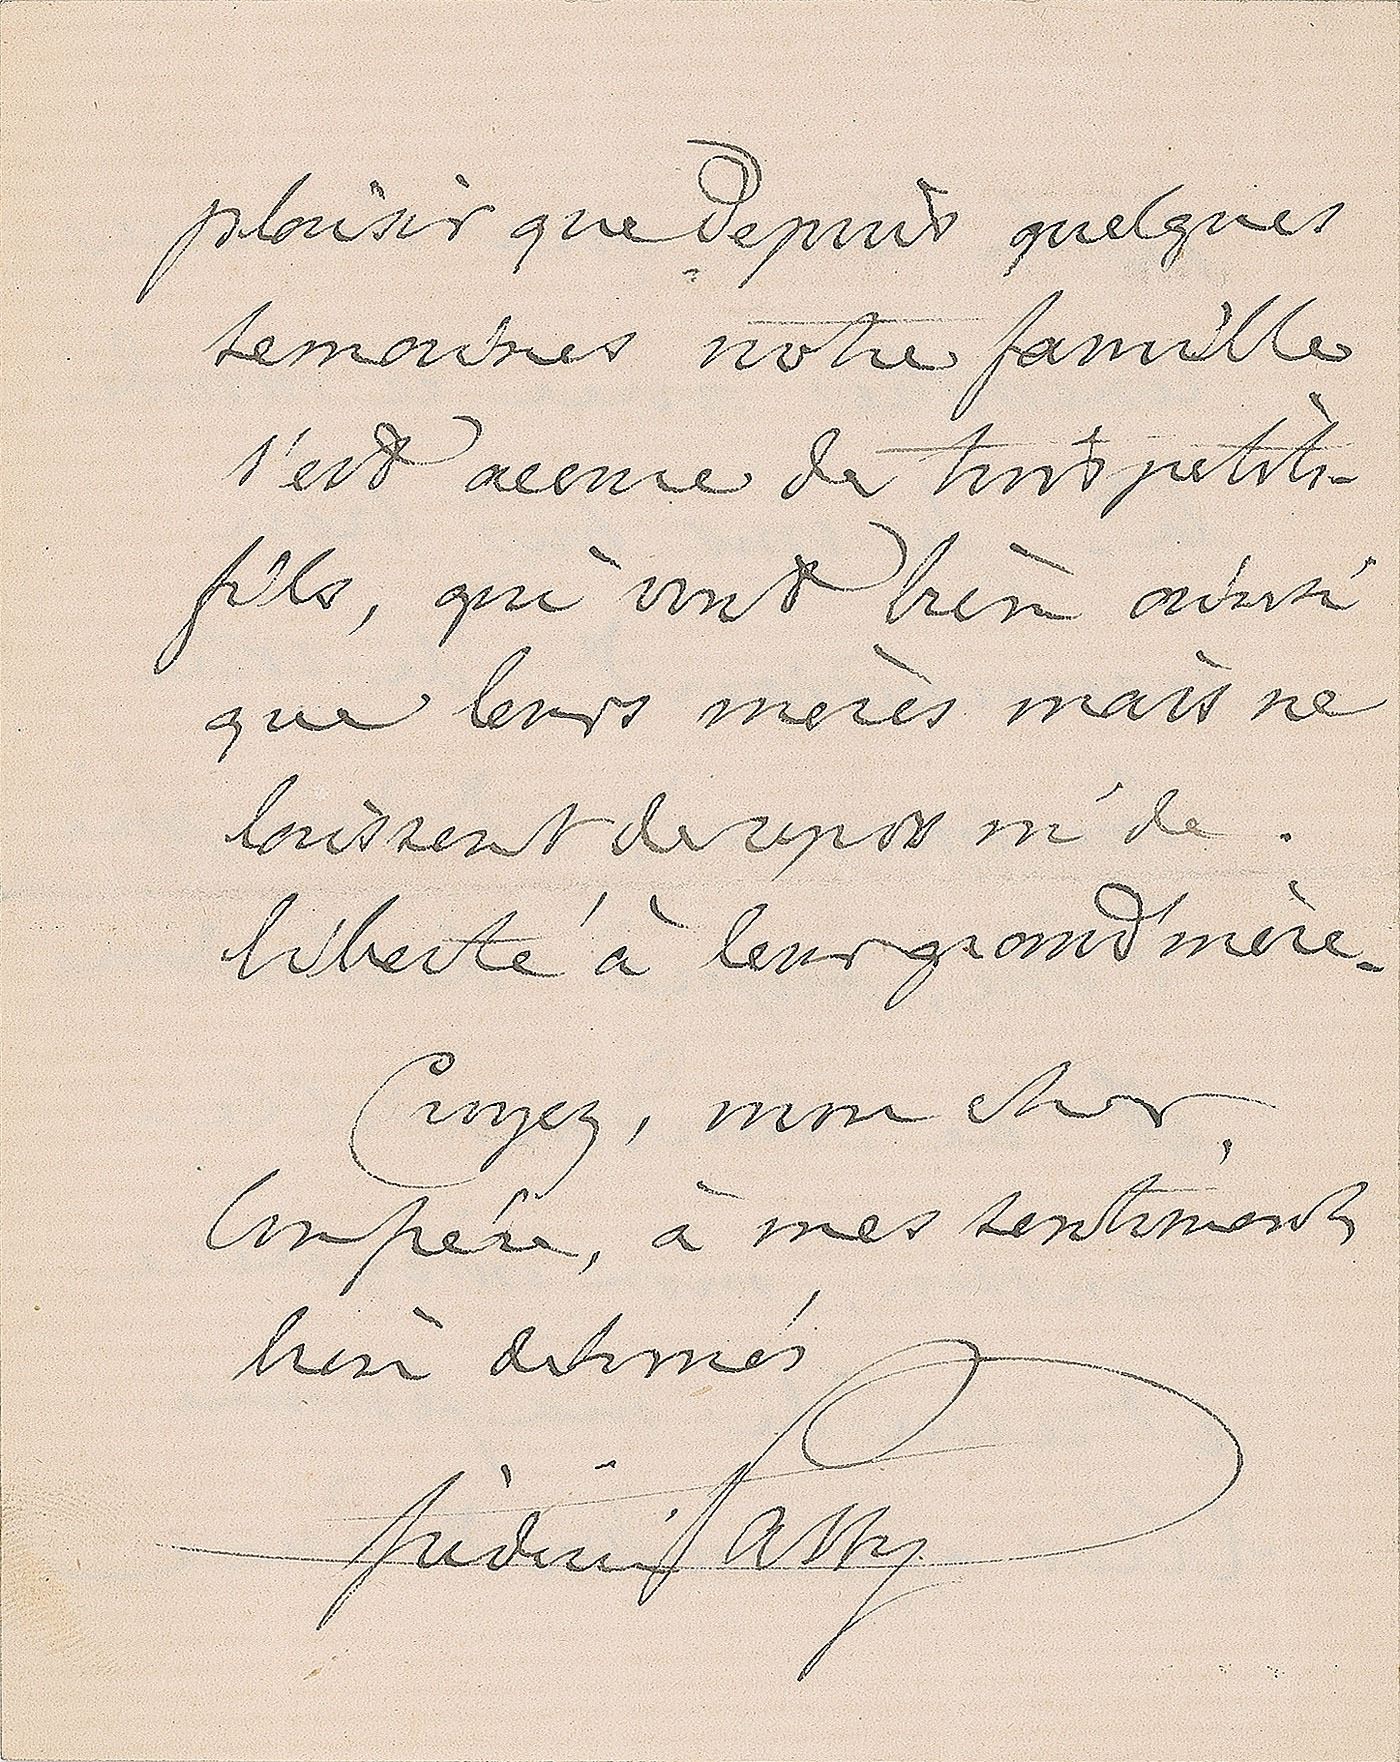 plaisir que depuis quelques
semaines notre famille
s'est accrue de trois petits-
fils, qui vont bien ainsi
que leurs mères mais ne
laissent de repos ni de
liberté à leur grand'mère.
Croyez, mon cher
Compère, à mes sentiments
bien
Frédéric Passy